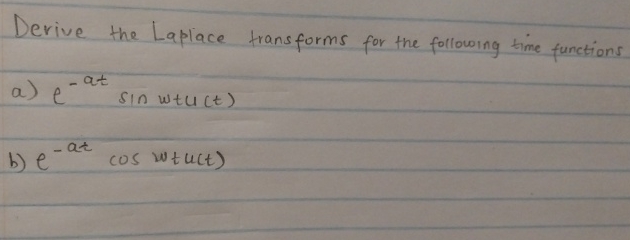 Derive the Laplace transforms for the following time functions
a) e^-at sin wtu(t)
b) e^-at cos wtu(t)